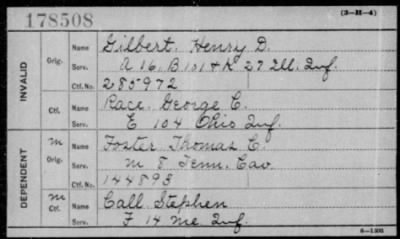 178508
(3-H-4)
INVALID
Orig. Name Gilbert, Henry D.
Serv. A 16, B 101 & K 27 Ill. Inf.
Ctf. No. 285972
Ctf. Name Race, George C.
Serv. E 104 Ohio Inf.
DEPENDENT
M Orig. Name Foster Thomas C.
Serv. M 8 Tenn. Cav
Ctf. No. 144893
M Ctf. Name Call Stephen
Serv. F 14 Me. Inf.